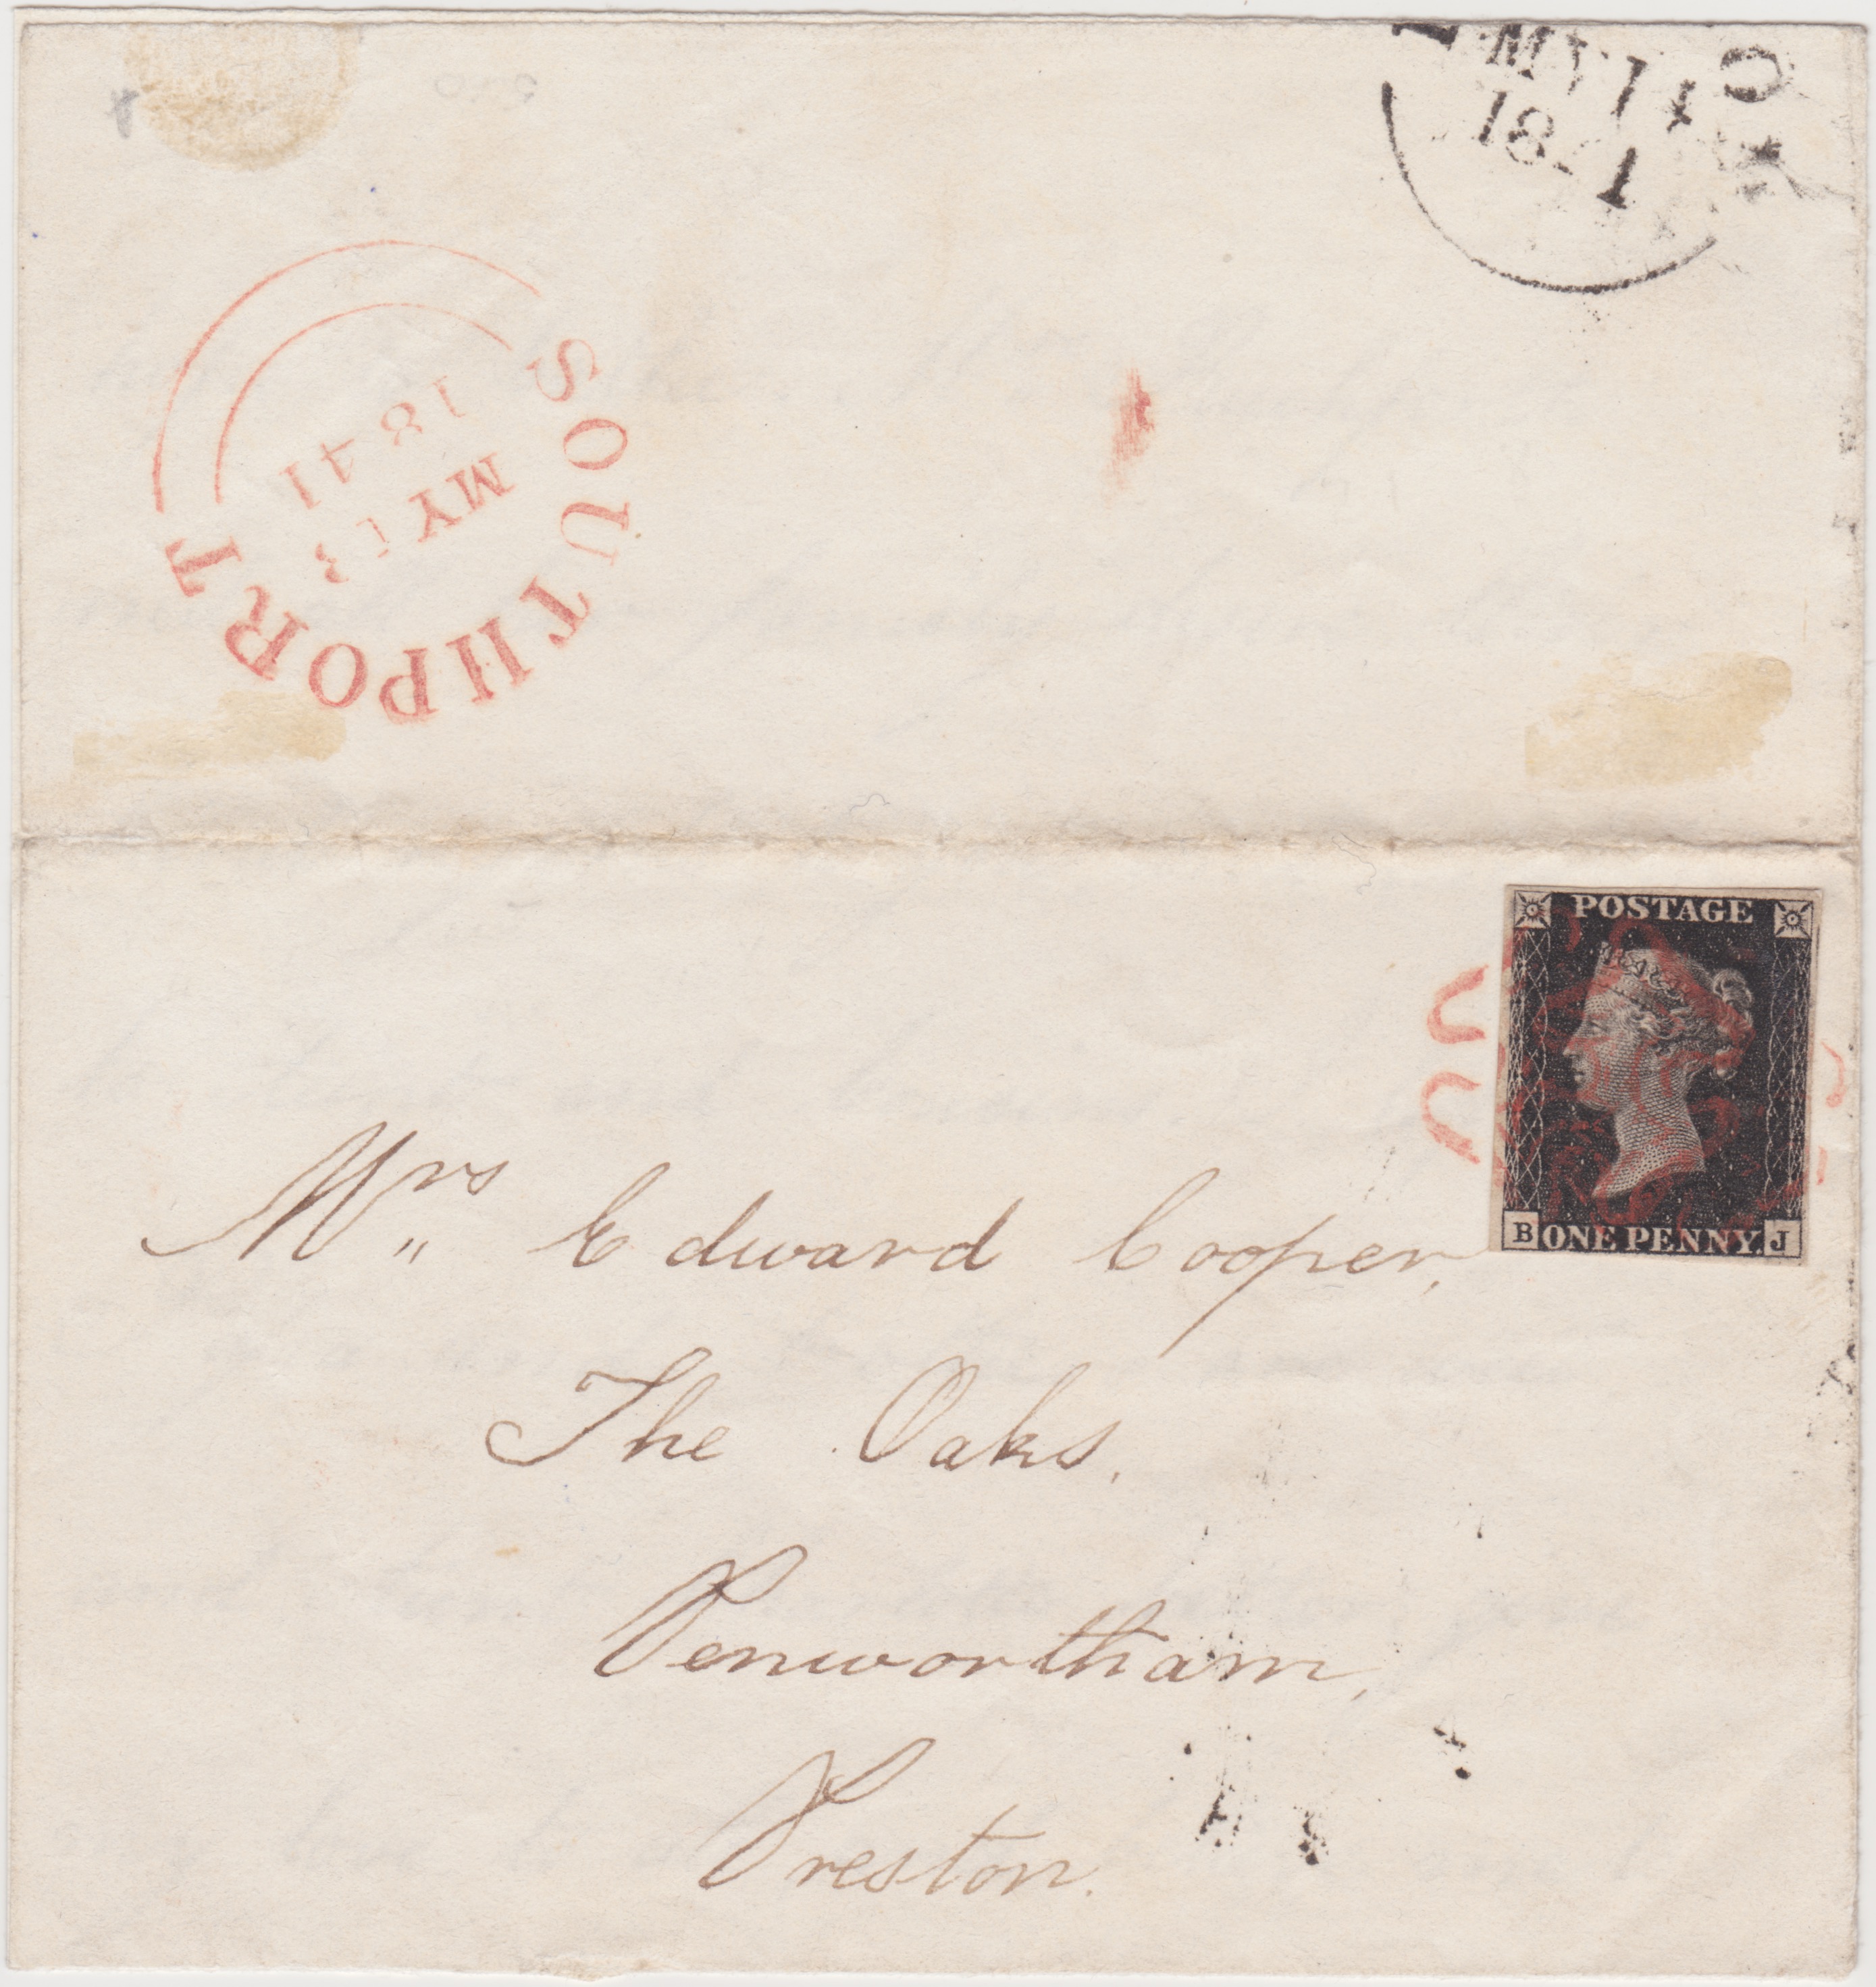 MY 14
1841
SOUTHPORT
MY 13
1841
POSTAGE
B ONE PENNY. J
Mrs Edward Cooper,
The Oaks,
Penwortham,
Preston.